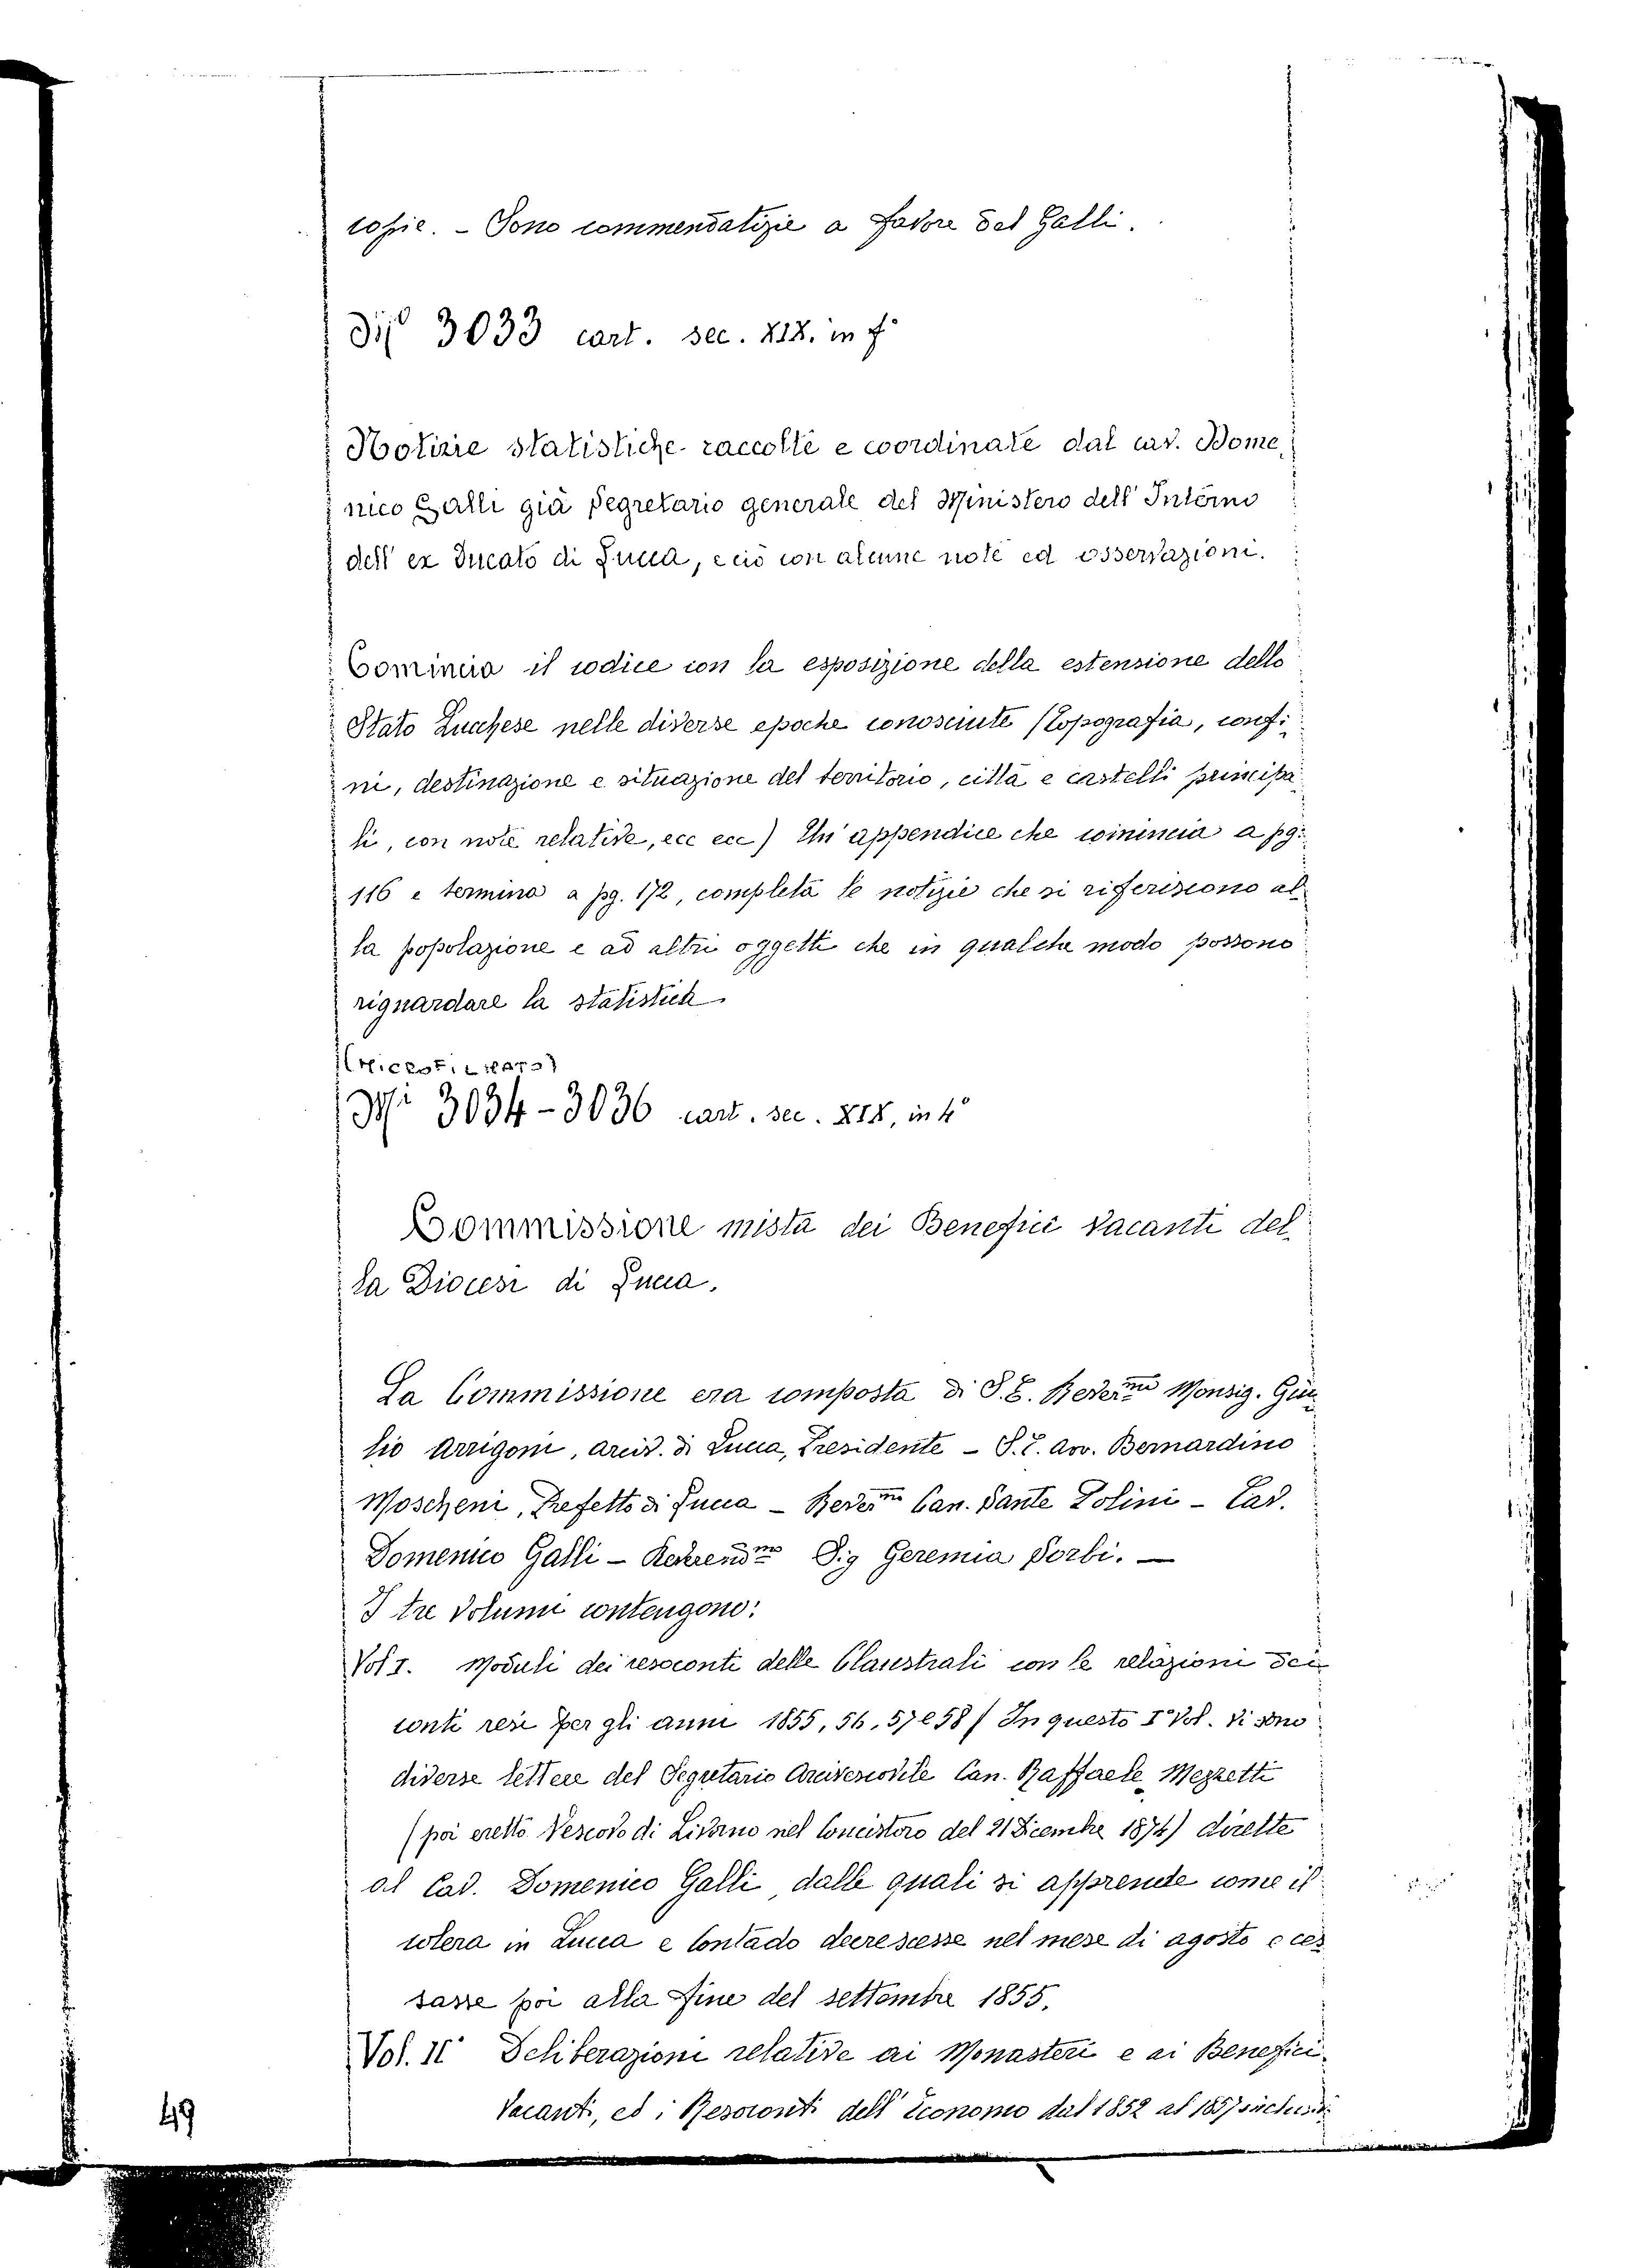 copie. – Sono commendatizie a favore del Galli.
Ms 3033 cart. sec. XIX. in f°
Notizie statistiche raccolte e coordinate dal cav. Dome-
nico Galli già Segretario generale del Ministero dell' Interno
dell' ex Ducato di Lucca, e ciò con alcune note ed osservazioni.
Comincia il codice con la esposizione della estensione dello
Stato Lucchese nelle diverse epoche conosciute (Topografia, confi-
ni, destinazione e situazione del territorio, città e castelli principa-
li, con note relative, ecc ecc) Un' appendice che comincia a pg.
116 e termina a pg. 172, completa le notizie che si riferiscono al-
la popolazione e ad altri oggetti che in qualche modo possono
riguardare la statistica
(Microfilmato)
Mi 3034-3036 cart. sec. XIX, in 4°
Commissione mista dei Benefici vacanti del-
la Diocesi di Lucca.
La Commissione era composta di S. E. Reverma Monsig. Giu-
lio Arrigoni, arciv. di Lucca, Presidente – S. E. Avv. Bernardino
Moscheni, Prefetto di Lucca – Revermo Can. Sante Polini – Cav.
Domenico Galli – Reverendmo Sig Geremia Sorbi. —
I tre volumi contengono:
Vol I. Moduli dei resoconti delle Claustrali con le relazioni dei
conti resi per gli anni 1855, 56, 57 e 58 / In questo I° Vol. vi sono
diverse lettere del Segretario Arcivescovile Can. Raffaele Mezzetti
(poi eretto Vescovo di Livorno nel Concistoro del 21 Dicembre 1874) dirette
al Cav. Domenico Galli, dalle quali si apprende come il
colera in Lucca e Contado decrescesse nel mese di agosto e ces-
sasse poi alla fine del settembre 1855.
Vol. II° Deliberazioni relative ai Monasteri e ai Benefici
Vacanti, ed i Resoconti dell' Economo dal 1852 al 1857 inclusive
49